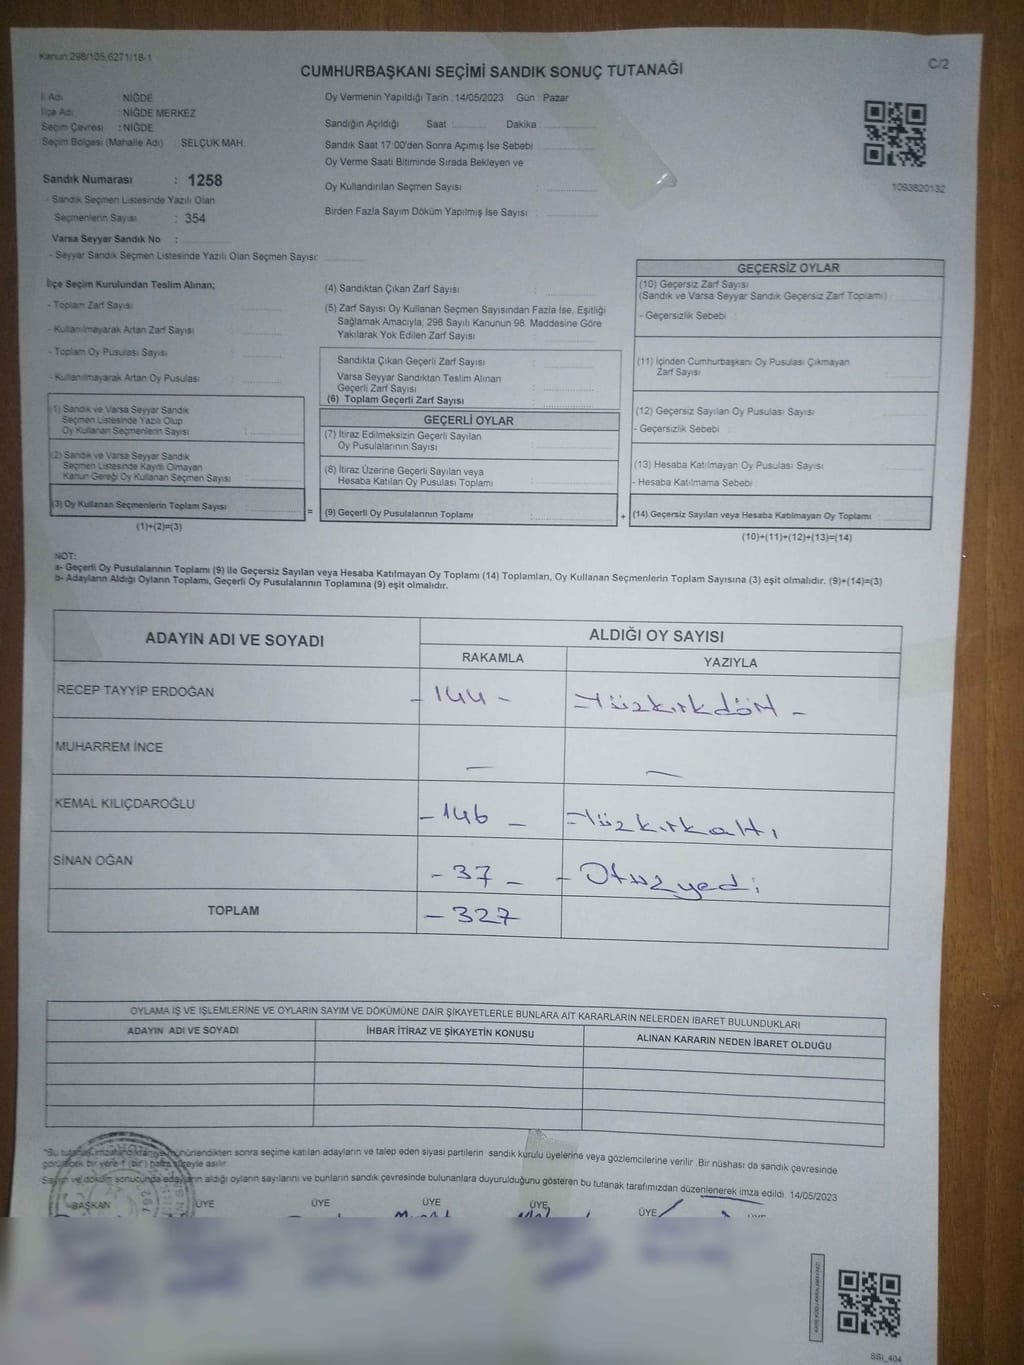 Kanun:298/105,6271/18-1
C/2
CUMHURBAŞKANI SEÇİMİ SANDIK SONUÇ TUTANAĞI
İl Adı : NİĞDE
İlçe Adı : NİĞDE MERKEZ
Seçim Çevresi : NİĞDE
Seçim Bölgesi (Mahalle Adı) : SELÇUK MAH.
Sandık Numarası : 1258
- Sandık Seçmen Listesinde Yazılı Olan
Seçmenlerin Sayısı : 354
Varsa Seyyar Sandık No :
- Seyyar Sandık Seçmen Listesinde Yazılı Olan Seçmen Sayısı:
Oy Vermenin Yapıldığı Tarih : 14/05/2023 Gün : Pazar
Sandığın Açıldığı Saat : Dakika :
Sandık Saat 17:00'den Sonra Açımış İse Sebebi :
Oy Verme Saati Bitiminde Sırada Bekleyen ve
Oy Kullandırılan Seçmen Sayısı :
Birden Fazla Sayım Döküm Yapılmış İse Sayısı :
1093820132
İlçe Seçim Kurulundan Teslim Alınan;
- Toplam Zarf Sayısı :
- Kullanılmayarak Artan Zarf Sayısı :
- Toplam Oy Pusulası Sayısı :
- Kullanılmayarak Artan Oy Pusulası :
(1) Sandık ve Varsa Seyyar Sandık
Seçmen Listesinde Yazılı Olup
Oy Kullanan Seçmenlerin Sayısı :
(2) Sandık ve Varsa Seyyar Sandık
Seçmen Listesinde Kayıtlı Olmayan
Kanun Gereği Oy Kullanan Seçmen Sayısı :
(3) Oy Kullanan Seçmenlerin Toplam Sayısı :
(1)+(2)=(3)
=
(4) Sandıktan Çıkan Zarf Sayısı :
(5) Zarf Sayısı Oy Kullanan Seçmen Sayısından Fazla İse, Eşitliği
Sağlamak Amacıyla, 298 Sayılı Kanunun 98. Maddesine Göre
Yakılarak Yok Edilen Zarf Sayısı :
Sandıkta Çıkan Geçerli Zarf Sayısı :
Varsa Seyyar Sandıktan Teslim Alınan
Geçerli Zarf Sayısı :
(6) Toplam Geçerli Zarf Sayısı :
GEÇERLİ OYLAR
(7) İtiraz Edilmeksizin Geçerli Sayılan
Oy Pusulalarının Sayısı :
(8) İtiraz Üzerine Geçerli Sayılan veya
Hesaba Katılan Oy Pusulası Toplamı :
(9) Geçerli Oy Pusulalarının Toplamı :
+
GEÇERSİZ OYLAR
(10) Geçersiz Zarf Sayısı
(Sandık ve Varsa Seyyar Sandık Geçersiz Zarf Toplamı) :
- Geçersizlik Sebebi :
(11) İçinden Cumhurbaşkanı Oy Pusulası Çıkmayan
Zarf Sayısı :
(12) Geçersiz Sayılan Oy Pusulası Sayısı :
- Geçersizlik Sebebi :
(13) Hesaba Katılmayan Oy Pusulası Sayısı :
- Hesaba Katılmama Sebebi :
(14) Geçersiz Sayılan veya Hesaba Katılmayan Oy Toplamı :
(10)+(11)+(12)+(13)=(14)
NOT:
a- Geçerli Oy Pusulalarının Toplamı (9) ile Geçersiz Sayılan veya Hesaba Katılmayan Oy Toplamı (14) Toplamları, Oy Kullanan Seçmenlerin Toplam Sayısına (3) eşit olmalıdır. (9)+(14)=(3)
b- Adayların Aldığı Oyların Toplamı, Geçerli Oy Pusulalarının Toplamına (9) eşit olmalıdır.
ADAYIN ADI VE SOYADI
ALDIĞI OY SAYISI
RAKAMLA YAZIYLA
RECEP TAYYİP ERDOĞAN - 144 - - Yüzkırkdört -
MUHARREM İNCE — —
KEMAL KILIÇDAROĞLU - 146 - - Yüzkırkaltı
SİNAN OĞAN - 37 - - Otuzyedi
TOPLAM - 327
OYLAMA İŞ VE İŞLEMLERİNE VE OYLARIN SAYIM VE DÖKÜMÜNE DAİR ŞİKAYETLERLE BUNLARA AİT KARARLARIN NELERDEN İBARET BULUNDUKLARI
ADAYIN ADI VE SOYADI İHBAR İTİRAZ VE ŞİKAYETİN KONUSU ALINAN KARARIN NEDEN İBARET OLDUĞU
"Bu tutanak mühürlendikten sonra seçime katılan adayların ve talep eden siyasi partilerin sandık kurulu üyelerine veya gözlemcilerine verilir .Bir nüshası da sandık çevresinde
görülecek bir yere 1 (bir) hafta süreyle asılır.
Sayım ve döküm sonucunda adayların aldığı oyların sayılarını ve bunların sandık çevresinde bulunanlara duyurulduğunu gösteren bu tutanak tarafımızdan düzenlenerek imza edildi. 14/05/2023
BAŞKAN ÜYE ÜYE ÜYE ÜYE ÜYE
SSI_404